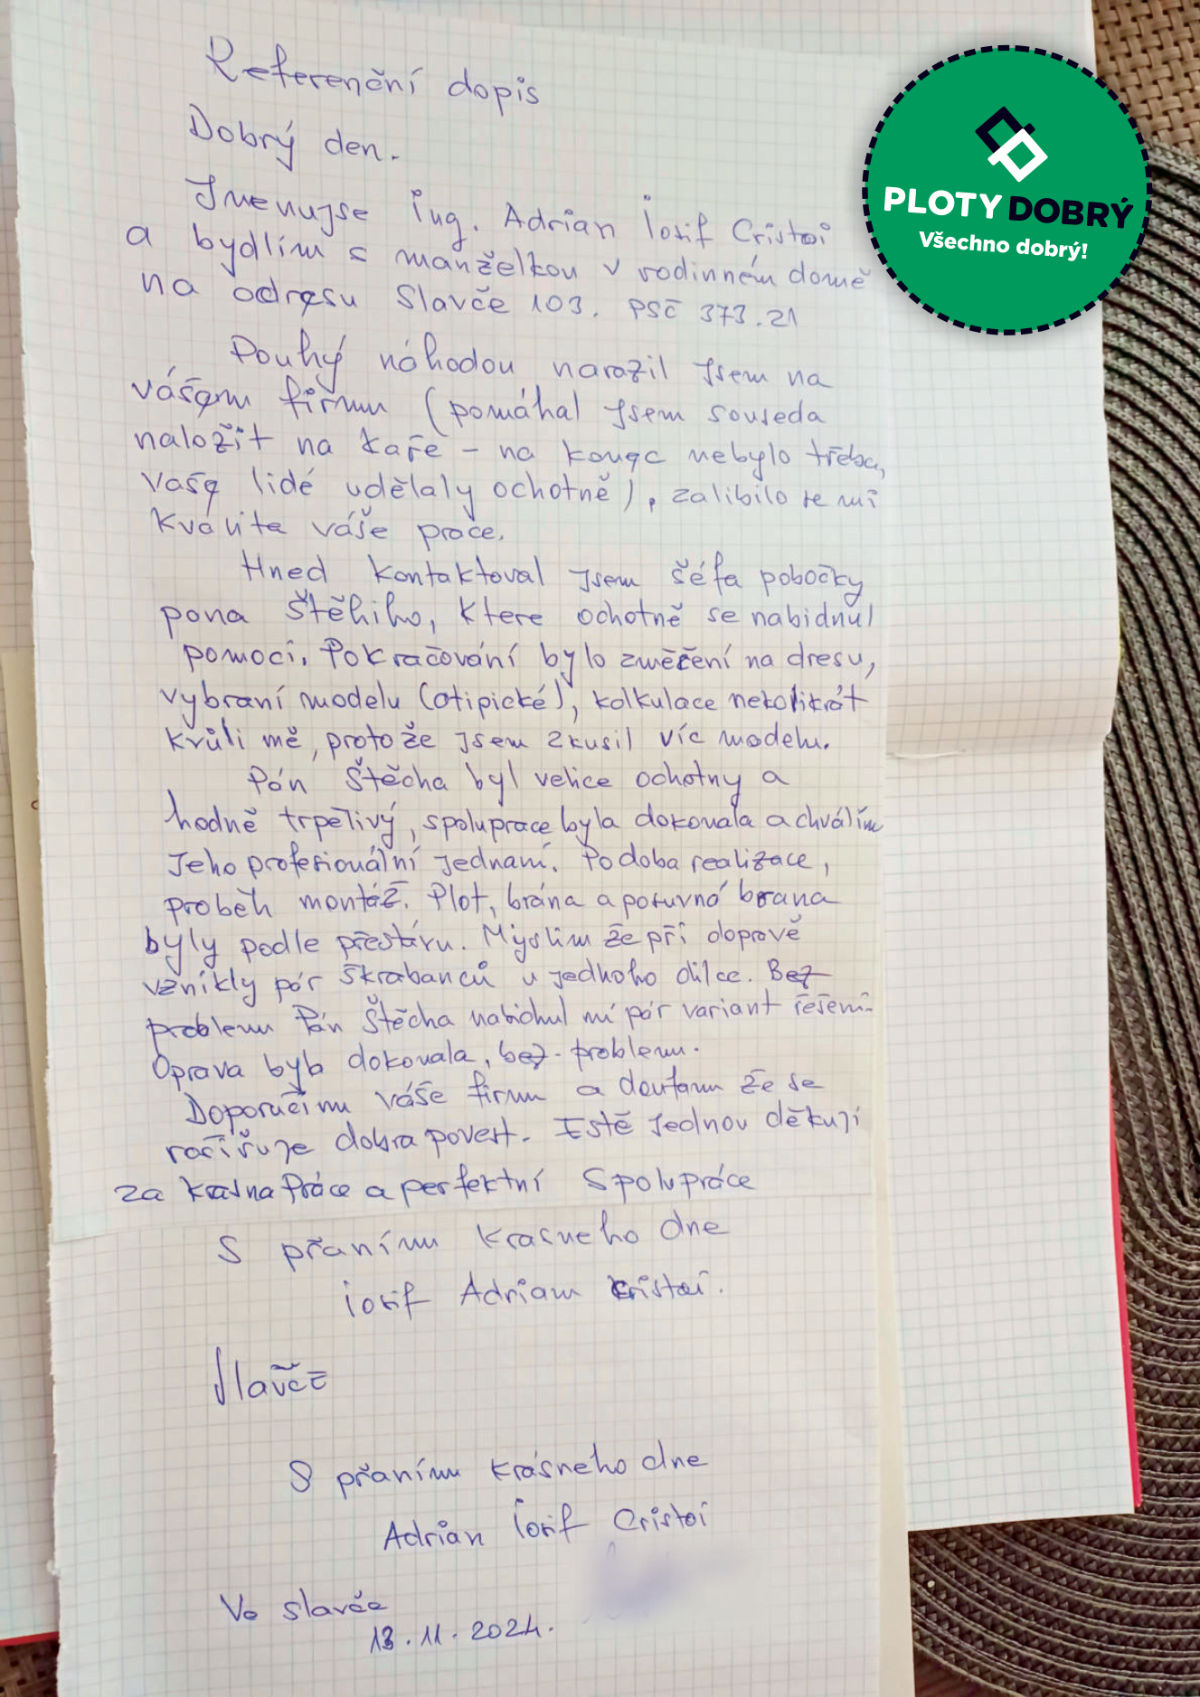 Referenční dopis
Dobrý den.
Jmenujse ing. Adrian Iosif Cristoi
a bydlím s manželkou v rodinném domě
na adresu Slavče 103. PSČ 373.21
Pouhý náhodou narazil jsem na
vášem firmu (pomáhal jsem souseda
naložit na kaře - na konec nebylo třeba,
vaše lidé udělaly ochotně), zalibilo se mi
kvalita váše prace.
Hned kontaktoval jsem šéfa pobočky
pona Štěhiho, ktere ochotně se nabidnul
pomoci. Pokračování bylo změření na dresu,
vybraní modelu (atipické), kolkulace nekolikrát
kvůli mě, protože jsem zkusil víc modelu.
Pán Štěcha byl velice ochotny a
hodně trpělivý, spoluprace byla dokonala a chválím
jeho profesionální jednaní. Podoba realizace,
proběh montáž. Plot, brána a posuvná brana
byly podle přestávu. Myslim že při dopravě
vznikly pár škrabanců u jednoho dilce. Bez
problemu Pán Štěcha nabidnul mi pár variant řešení.
Oprava byla dokonala, bez problemu.
Doporučimu váše firmu a doufam že se
rošířuje dobra povest. Estě jednou děkuji
za krasna Práce a perfektní Spolupráce
S přanímu krasneho dne
iosif Adrian Cristoi.
Slavče
S přanímu krásneho dne
Adrian Iosif Cristoi
Ve slavče
13.11.2024.
PLOTY DOBRÝ
Všechno dobrý!